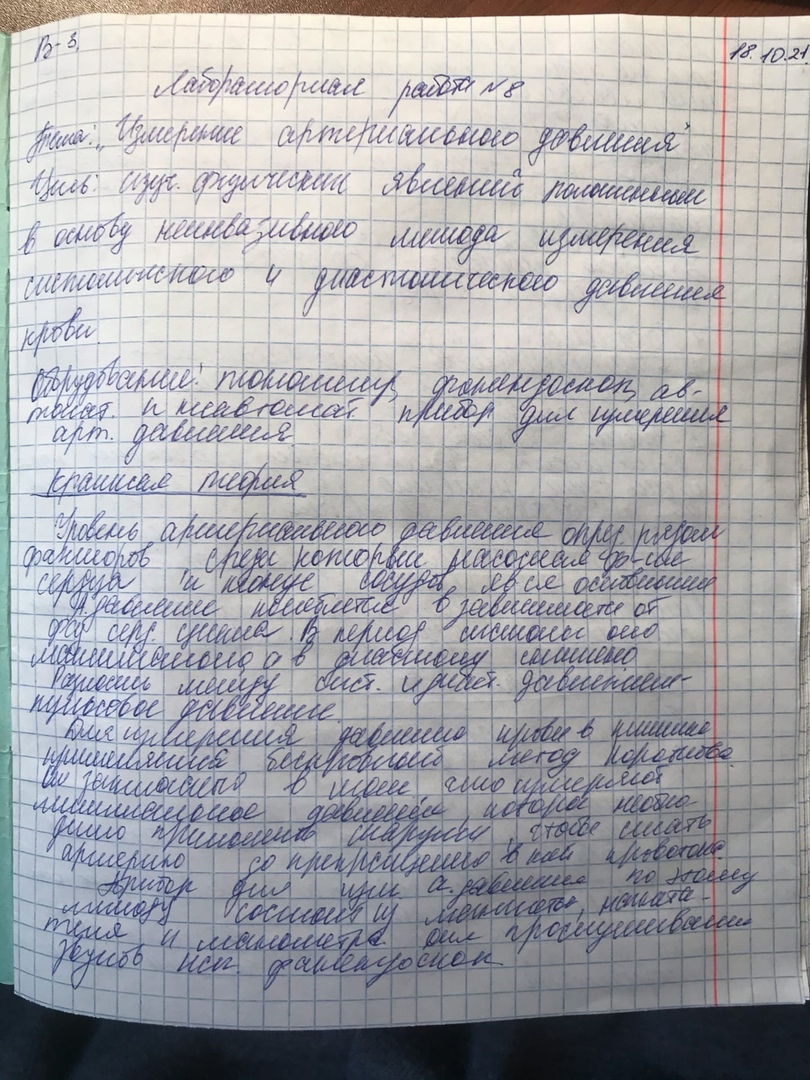 В-3.
18.10.21
Лабораторная работа №8
Тема: „Измерение артериального давления"
Цель: изуч. физических явлений положенных
в основу неинвазивного метода измерения
систолического и диастолического давления
крови.
Оборудование: тонометр, фонендоскоп, ав-
томат. и неавтомат прибор для измерения
арт. давления
Краткая теория
Уровень артериального давления опред рядом
факторов среди которых насосная
сердца и сосудов, явл основными
А давление колеблется в зависимости от
серд. цикла. В период систолы оно
максимально а в диастолу снижено
Разность между сист. и диаст. давлением-
пульсовое давление.
Для измерения давления крови в клинике
применяется бескровный метод Короткова.
Он заключается в том что измеряют
минимальное давление, которое необхо-
димо приложить снаружи, чтобы сжать
артерию до прекращения в ней кровотока.
Прибор для изм. а. давления по этому
методу состоит из манжеты, нагнета-
теля и манометра для прослушивания
звуков исп. фонендоскоп